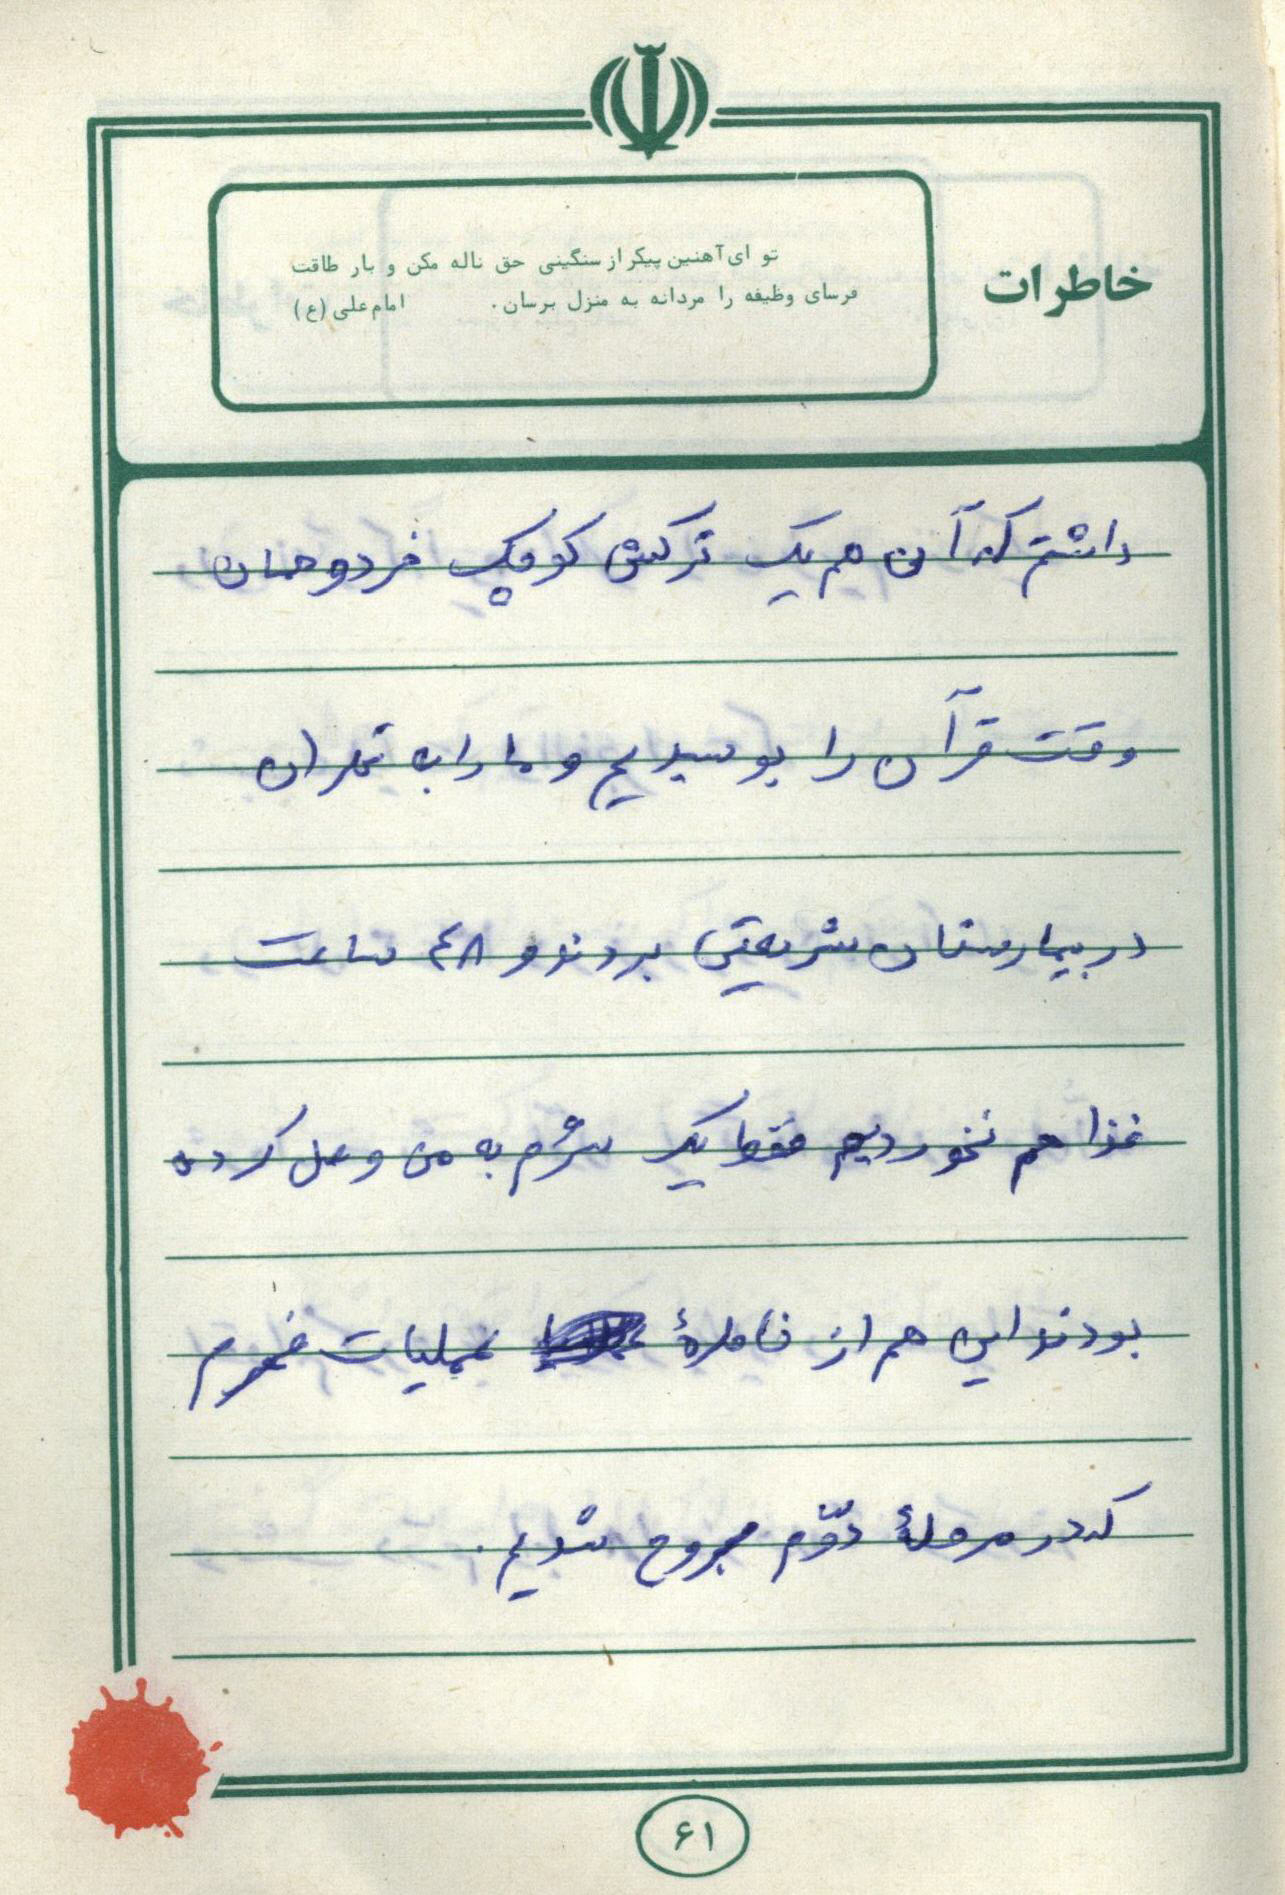 خاطرات
تو ای آهنین پیکر از سنگینی حق ناله مکن و بار طاقت
فرسای وظیفه را مردانه به منزل برسان. امام علی (ع)
داشتم که آن هم یک ترکش کوچک خرد و همان
وقت قرآن را بوسیدیم و ما را به تهران
در بیمارستان شریعتی بردند و ۴۸ ساعت
غذا هم نخوردیم فقط یک سرم به من وصل کرده
بودند این هم از خاطرهٔ عملیات محرم
که در مرحلهٔ دوّم مجروح شدیم.
۶۱